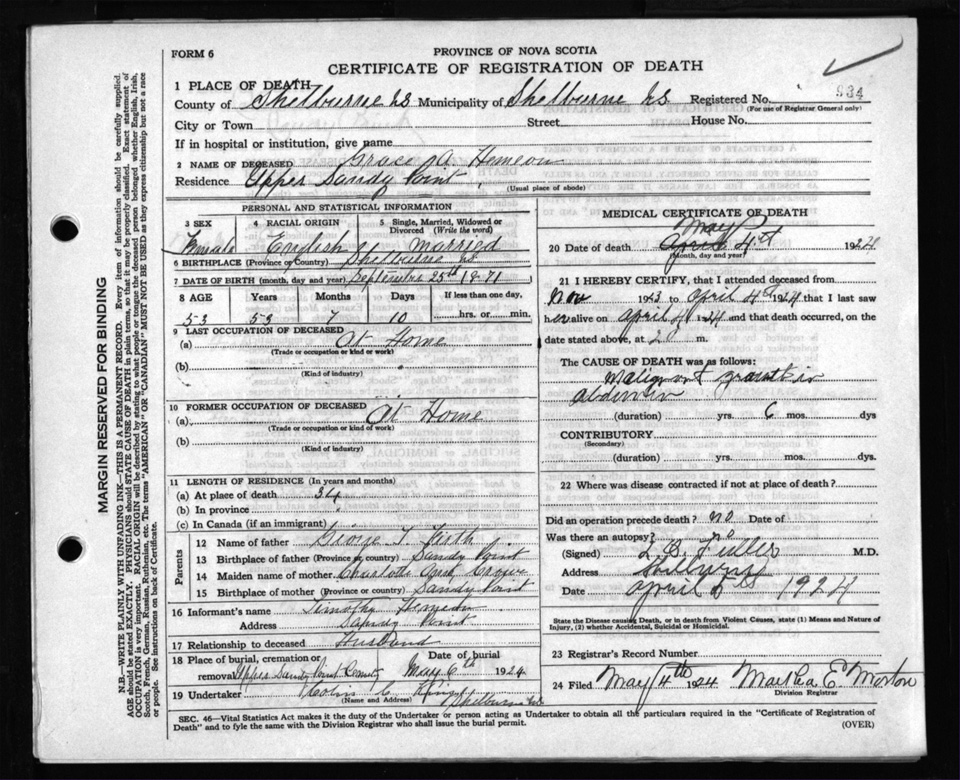 FORM 6
PROVINCE OF NOVA SCOTIA
CERTIFICATE OF REGISTRATION OF DEATH
1 PLACE OF DEATH
County of Shelburne NS Municipality of Shelburne NS. Registered No. 934
(For use of Registrar General only)
City or Town Street House No.
If in hospital or institution, give name
2 NAME OF DECEASED Grace A. Hemeon
Residence Upper Sandy Point
(Usual place of abode)
PERSONAL AND STATISTICAL INFORMATION
3 SEX 4 RACIAL ORIGIN 5 Single, Married, Widowed or Divorced (Write the word)
Female English Married
6 BIRTHPLACE (Province or Country) Shelburne NS
7 DATE OF BIRTH (month, day and year) September 25th 1871
8 AGE Years Months Days If less than one day,
53 53 7 10 hrs. or min.
9 LAST OCCUPATION OF DECEASED
(a) At Home
(Trade or occupation or kind or work)
(b)
(Kind of industry)
10 FORMER OCCUPATION OF DECEASED
(a) At Home
(Trade or occupation or kind of work)
(b)
(Kind of industry)
11 LENGTH OF RESIDENCE (In years and months)
(a) At place of death 34
(b) In province
(c) In Canada (if an immigrant)
Parents
12 Name of father George T. Firth
13 Birthplace of father (Province or country) Sandy Point
14 Maiden name of mother Charlotte Crowe
15 Birthplace of mother (Province or country) Sandy Point
16 Informant's name Timothy Hemeon
Address Sandy Point
17 Relationship to deceased Husband
18 Place of burial, cremation or removal Upper Sandy Point Date of burial May 6th 1924
19 Undertaker King
(Name and Address) Shelburne NS
MEDICAL CERTIFICATE OF DEATH
May
20 Date of death April 4th 1924
(Month, day and year)
21 I HEREBY CERTIFY, that I attended deceased from
Nov 1923 to April 4th 1924 that I last saw
her alive on April 4 1924 and that death occurred, on
date stated above, at m.
The CAUSE OF DEATH was as follows:
Malignant growth in
abdomen
(duration) yrs. 6 mos. dys
CONTRIBUTORY
(Secondary)
(duration) yrs. mos. dys
22 Where was disease contracted if not at place of death?
Did an operation precede death? no Date of
Was there an autopsy?
(Signed) L. B. Fuller M.D.
Address Shelburne
Date April 5th 1924
State the Disease causing Death, or in death from Violent Causes, state (1) Means and Nature of Injury, (2) whether Accidental, Suicidal or Homicidal.
23 Registrar's Record Number
24 Filed May 4th 1924 Martha E. Morton
Division Registrar
SEC. 46—Vital Statistics Act makes it the duty of the Undertaker or person acting as Undertaker to obtain all the particulars required in the "Certificate of Registration of
Death" and to fyle the same with the Division Registrar who shall issue the burial permit.
(OVER)
MARGIN RESERVED FOR BINDING
N.B.—WRITE PLAINLY WITH UNFADING INK—THIS IS A PERMANENT RECORD. Every item of information should be carefully supplied.
AGE should be stated EXACTLY. PHYSICIANS should STATE CAUSE OF DEATH in plain terms, so that it may be properly classified. Exact statement of
OCCUPATION is very important. RACIAL ORIGIN will be described by stating to what people or tongue the deceased person belonged whether English, Irish,
Scotch, French, German, Russian, Ruthenian, etc. The terms "AMERICAN" OR "CANADIAN" MUST NOT BE USED as they express citizenship but not a race
or people. See instructions on back of Certificate.